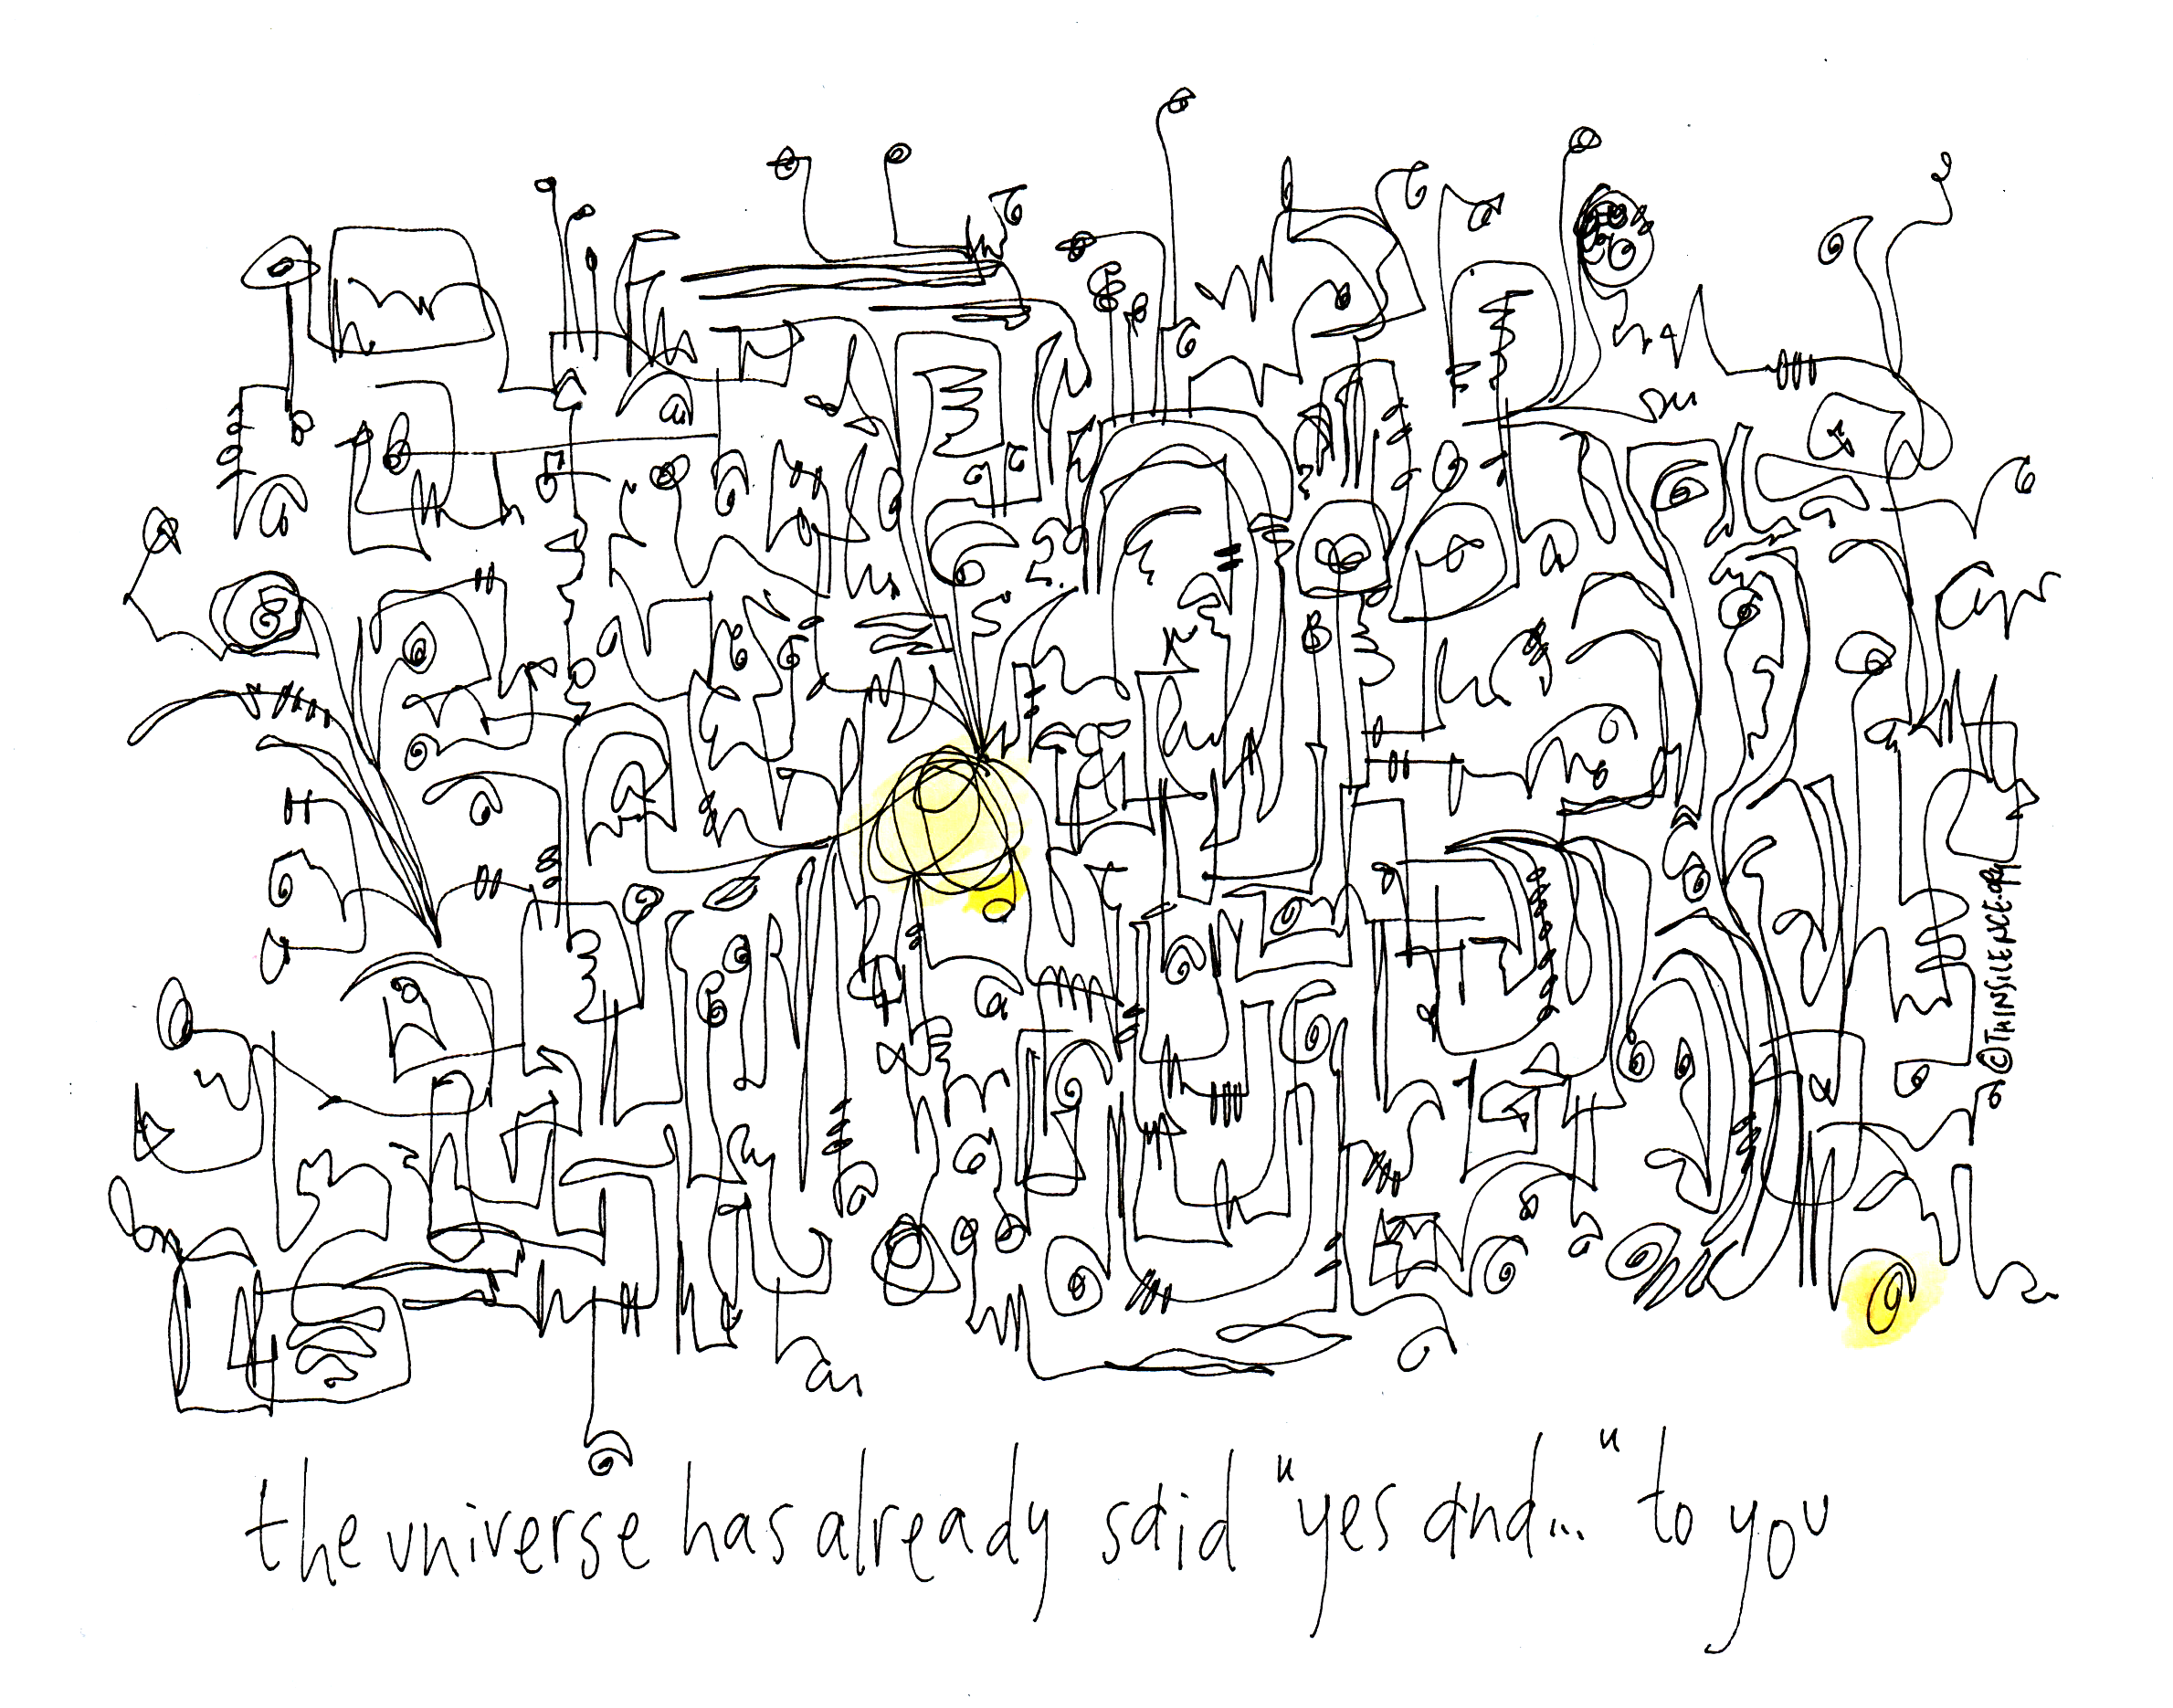 ©THINSILENCE.ORG
the universe has already said "yes and..." to you